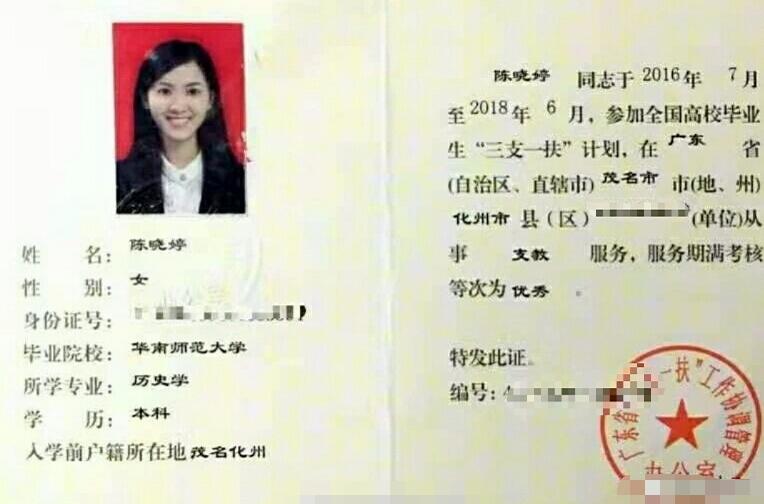 姓 名：陈晓婷
性 别：女
身份证号：
毕业院校：华南师范大学
所学专业：历史学
学 历：本科
入学前户籍所在地 茂名化州
陈晓婷 同志于 2016 年 7 月
至 2018 年 6 月，参加全国高校毕业
生“三支一扶”计划，在 广东 省
(自治区、直辖市) 茂名市 市(地、州)
化州市 县（区） (单位)从
事 支教 服务，服务期满考核
等次为 优秀 。
特发此证。
编号：
广东省 一扶”工作协调管理
办公室